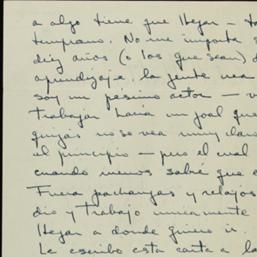 a algo tiene que llegar — ta
temprano. No me importa q
diez años (o los que sean) d
aprendizaje, la gente vea
soy un pésimo actor — v
trabajar hacia un goal que
quizás no se vea muy claro
el principio — pero al cual
cuando menos sabré que e
Fuera pachangas y relajos
dio y Trabajo unicamente
llegar a donde quiero ir.
Le escribo esta carta a la